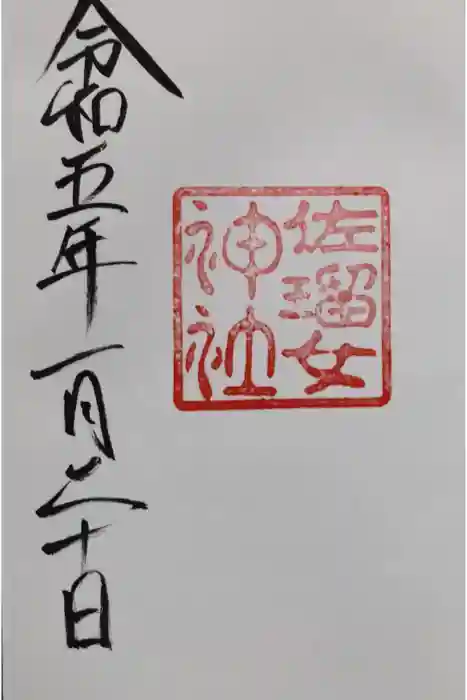 佐瑠女
神社
令和五年一月二十日